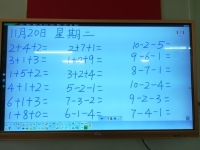 11月20日 星期二
2+4+2= 2+7+1= 10-2-5=
3+1+3= 9-6-1=
1+5+2= 3+2+4= 8-7-1=
4+1+2= 5-2-1= 10-2-4=
6+1+3= 7-3-2= 9-2-3=
1+8+0= 6-1-4= 7-4-1=